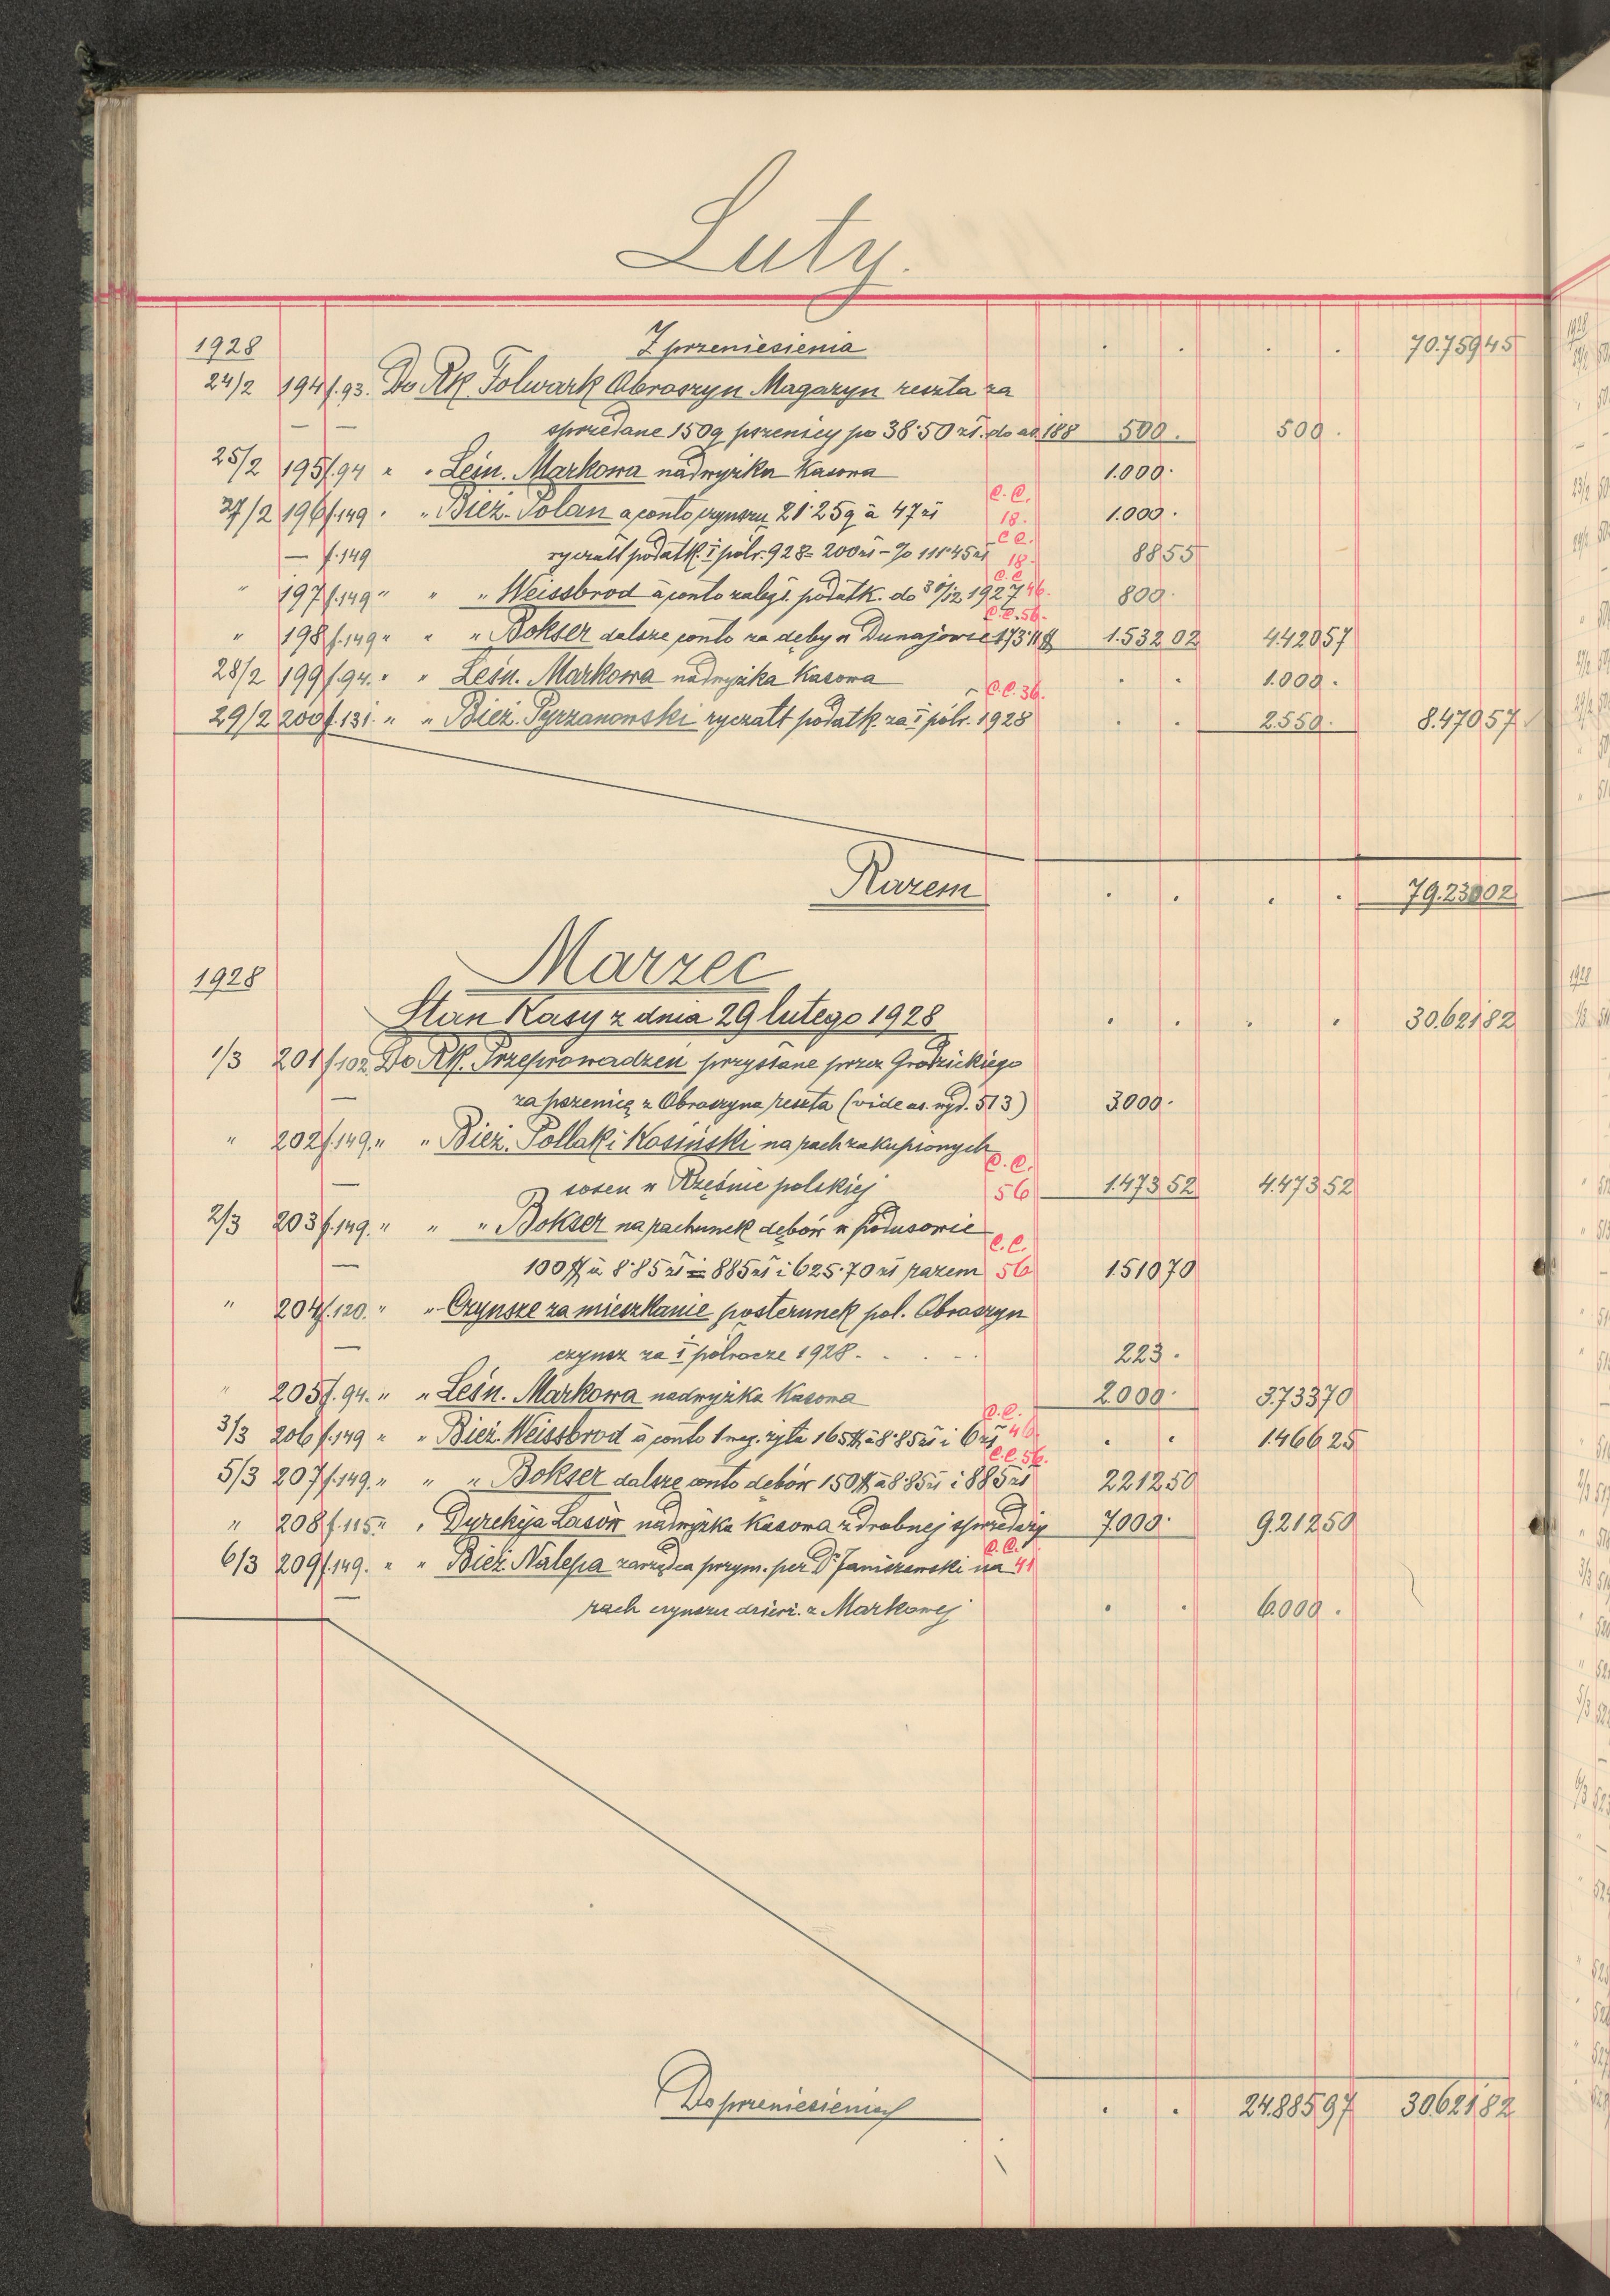 Luty.
1928 Z przeniesienia 70.759 45
24/2 194 f. 93. Do Rk. Folwark Obroszyn Magazyn reszta za
— — sprzedane 150q pszenicy po 38·50 zł. do as. 188 500. 500.
25/2 195 f. 94 " " Leśn. Markowa nadwyżka Kasowa 1.000.
27/2 196 f. 149 " " Bież. Polan a conto czynszu 21·25q à 47 zł C.C. 18. 1.000.
— f. 149 ryczałt podatk. I półr. 928 = 200 zł - % 111·45 zł C.C. 18. 88 55
" 197 f. 149 " " " Weissbrod à conto zaległ. podatk. do 31/12 1927 C.C. 46. 800.
" 198 f. 149 " " " Bokser dalsze conto za dęby w Dunajowie 173·11 $ C.C. 56. 1.532 02 4.420 57
28/2 199 f. 94. " " Leśn. Markowa nadwyżka Kasowa . . 1.000.
29/2 200 f. 131. " " Bież. Pyrzanowski ryczałt podatk. za I półr. 1928 C.C. 36. . . 2.550. 8.470 57
Razem . . . . 79.230 02
Marzec
1928
Stan Kasy z dnia 29 lutego 1928 . . . . 30.621 82
1/3 201 f. 102 Do Rk. Przeprowadzeń przysłane przez Grodzickiego
— za pszenicę z Obroszyna reszta (vide as. wyd. 513) 3.000.
" 202 f. 149. " " Bież. Pollak i Kosiński na rach zakupionych
— sosen w Rzęśnie polskiej C.C. 56 1.473 52 4.473 52
2/3 203 f. 149. " " " Bokser na rachunek dębów w Podusowie
— 100 $ à 8·85 zł = 885 zł i 625·70 zł razem C.C. 56 1.510 70
" 204 f. 120. " " Czynsze za mieszkanie posterunek pol. Obroszyn
— czynsz za I półrocze 1928. . . . 223.
" 205 f. 94. " " Leśn. Markowa nadwyżka Kasowa 2.000. 3.733 70
3/3 206 f. 149 " " Bież. Weissbrod à conto 1 wag. żyta 165 $ à 8·85 zł i 6 zł C.C. 46 . . 1.466 25
5/3 207 f. 149. " " " Bokser dalsze conto dębów 150 $ à 8·85 zł i 885 zł C.C. 56. 2.212 50
" 208 f. 115. " " Dyrekcja Lasów nadwyżka Kasowa z drobnej sprzedaży 7.000. 9.212 50
6/3 209 f. 149. " " Bież. Nalepa zarządca przym. per Dr Janiszewski na C.C. 41
— rach czynszu dzierż. z Markowej . . 6.000.
Do przeniesienia . . 24.885 97 30.621 82